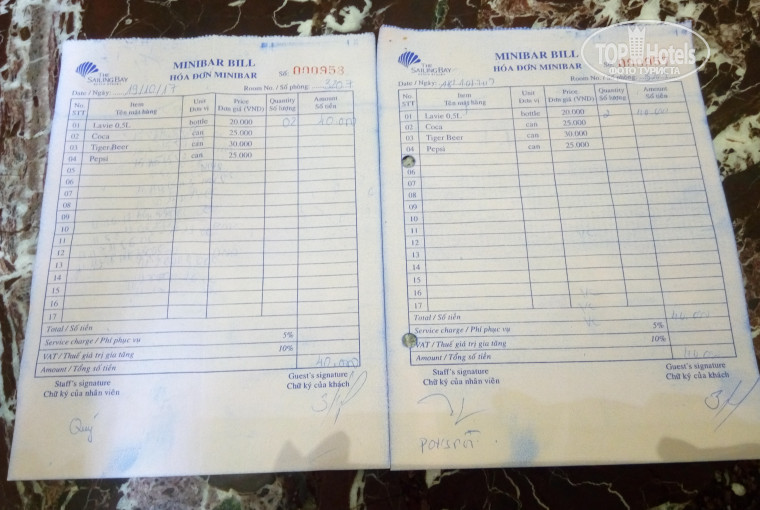 THE
SAILING BAY
MINIBAR BILL
HÓA ĐƠN MINIBAR
Số: 000953
Date / Ngày: 19/10/17 Room No. / Số phòng: 3207
No. STT Item Tên mặt hàng Unit Đơn vị Price Đơn giá (VND) Quantity Số lượng Amount Số tiền
01 Lavie 0,5L bottle 20.000 02 40.000
02 Coca can 25.000
03 Tiger Beer can 30.000
04 Pepsi can 25.000
05
06
07
08
09
10
11
12
13
14
15
16
17
Total / Số tiền
Service charge / Phí phục vụ 5%
VAT / Thuế giá trị gia tăng 10%
Amount / Tổng số tiền 40.000
Staff's signature
Chữ ký của nhân viên
Guest's signature
Chữ ký của khách
Quý
THE
SAILING BAY
MINIBAR BILL
HÓA ĐƠN MINIBAR
Số:
Date / Ngày: Room No. / Số phòng:
No. STT Item Tên mặt hàng Unit Đơn vị Price Đơn giá (VND) Quantity Số lượng Amount Số tiền
01 Lavie 0,5L bottle 20.000 2
02 Coca can 25.000
03 Tiger Beer can 30.000
04 Pepsi can 25.000
06
07
08
09
10
11
12
13
14
15
16
17
Total / Số tiền
Service charge / Phí phục vụ 5%
VAT / Thuế giá trị gia tăng 10%
Amount / Tổng số tiền
Staff's signature
Chữ ký của nhân viên
Guest's signature
Chữ ký của khách
TOP Hotels
ФОТО ТУРИСТА